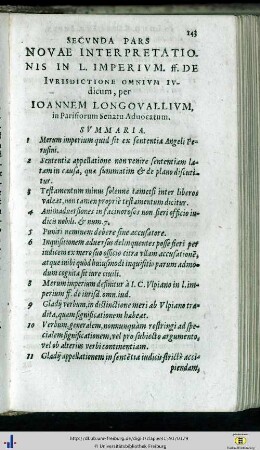 243
SECVNDA PARS
NOVAE INTERPRETATIO-
NIS IN L. IMPERIVM. ff. DE
IVRISDICTIONE OMNIVM IV-
dicum, per
IOANNEM LONGOVALLIVM,
in Parisiorum Senatu Aduocatum.
SVMMARIA.
1 Merum imperium quid sit ex sententia Angeli Pe-
rusini.
2 Sententiæ appellatione non venire sententiam la-
tam in causa, quæ summatim & de plano discuti-
tur.
3 Testamentum minus solemne tametsi inter liberos
valeat, non tamen propriè testamentum dicitur.
4 Animaduersiones in facinorosos non fieri officio iu-
dicis nobili. & num. 7.
5 Puniri neminem debere sine accusatore.
6 Inquisitionem aduersus delinquentes posse fieri per
iudicem ex mero suo officio citra vllam accusationē,
atque mihi quod huiusmodi inquisitio parum admo-
dum cognita sit iure ciuili.
8 Merum imperium definitur à I. C. Vlpiano in l. im-
perium ff. de iurisd. om. iud.
9 Gladij verbum, in distinctione meri ab Vlpiano tra-
dita, quam significationem habeat.
10 Verbum generale, nonnunquam restringi ad spe-
cialem significationem, vel pro subiecto argumento,
vel ob alterius verbi continentiam.
11 Gladij appellationem in sentētia iudicis strictè acci-
piendam,